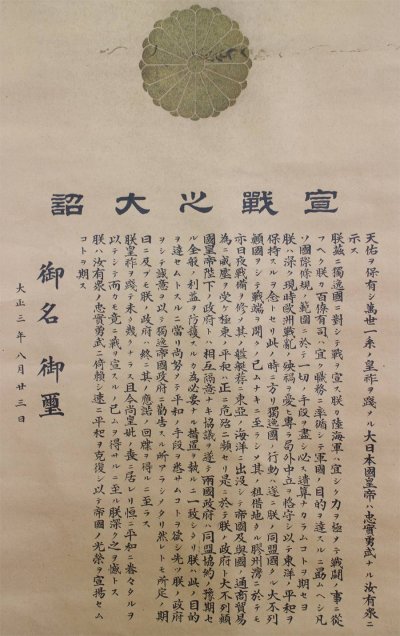 宣戰之大詔
天佑ヲ保有シ萬世一系ノ皇祚ヲ踐メル大日本國皇帝ハ忠實勇武ナル汝有衆ニ
示ス
朕茲ニ獨逸國ニ對シテ戰ヲ宣ス朕カ陸海軍ハ宜シク力ヲ極メテ戰鬪ノ事ニ從
フヘク朕カ百僚有司ハ宜ク職務ニ率循シテ軍國ノ目的ヲ達スルニ勗ムヘシ凡
ソ國際條規ノ範圍ニ於テ一切ノ手段ヲ盡シ必ス遺算ナカラムコトヲ期セヨ
朕ハ深ク現時歐洲戰亂ノ殃禍ヲ憂ヒ專ラ局外中立ヲ恪守シ以テ東洋ノ平和ヲ
保持スルヲ念トセリ此ノ時ニ方リ獨逸國ノ行動ハ遂ニ朕ノ同盟國タル大不列
顚國ヲシテ戰端ヲ開クノ已ムナキニ至ラシメ其ノ租借地タル膠州灣ニ於テモ
亦日夜戰備ヲ修メ其ノ艦艇荐ニ東亞ノ海洋ニ出沒シテ帝國及與國ノ通商貿易
爲ニ威壓ヲ受ケ極東ノ平和ハ正ニ危殆ニ瀕セリ是ニ於テ朕ノ政府ト大不列顚
國皇帝陛下ノ政府トハ相互隔意ナキ協議ヲ遂ケ兩國政府ハ同盟協約ノ豫期セ
ル全般ノ利益ヲ防護スルカ爲必要ナル措置ヲ執ルニ一致シタリ朕ハ此ノ目的
ヲ達セムトスルニ當リ尚努メテ平和ノ手段ヲ悉サムコトヲ欲シ先ツ朕ノ政府
ヲシテ誠意ヲ以テ獨逸帝國政府ニ勸告スル所アラシメタリ然レトモ所定ノ期
日ニ及フモ朕ノ政府ハ終ニ其ノ應諾ノ回牒ヲ得ルニ至ラス
朕皇祚ヲ踐テ未タ幾クナラス且今尚皇妣ノ喪ニ居レリ恒ニ平和ニ眷々タルヲ
以テシテ而カモ竟ニ戰ヲ宣スルノ已ムヲ得サルニ至ル朕深ク之ヲ憾トス
朕ハ汝有衆ノ忠實勇武ニ倚賴シ速ニ平和ヲ克復シ以テ帝國ノ光榮ヲ宣揚セム
コトヲ期ス
御名御璽
大正三年八月廿三日